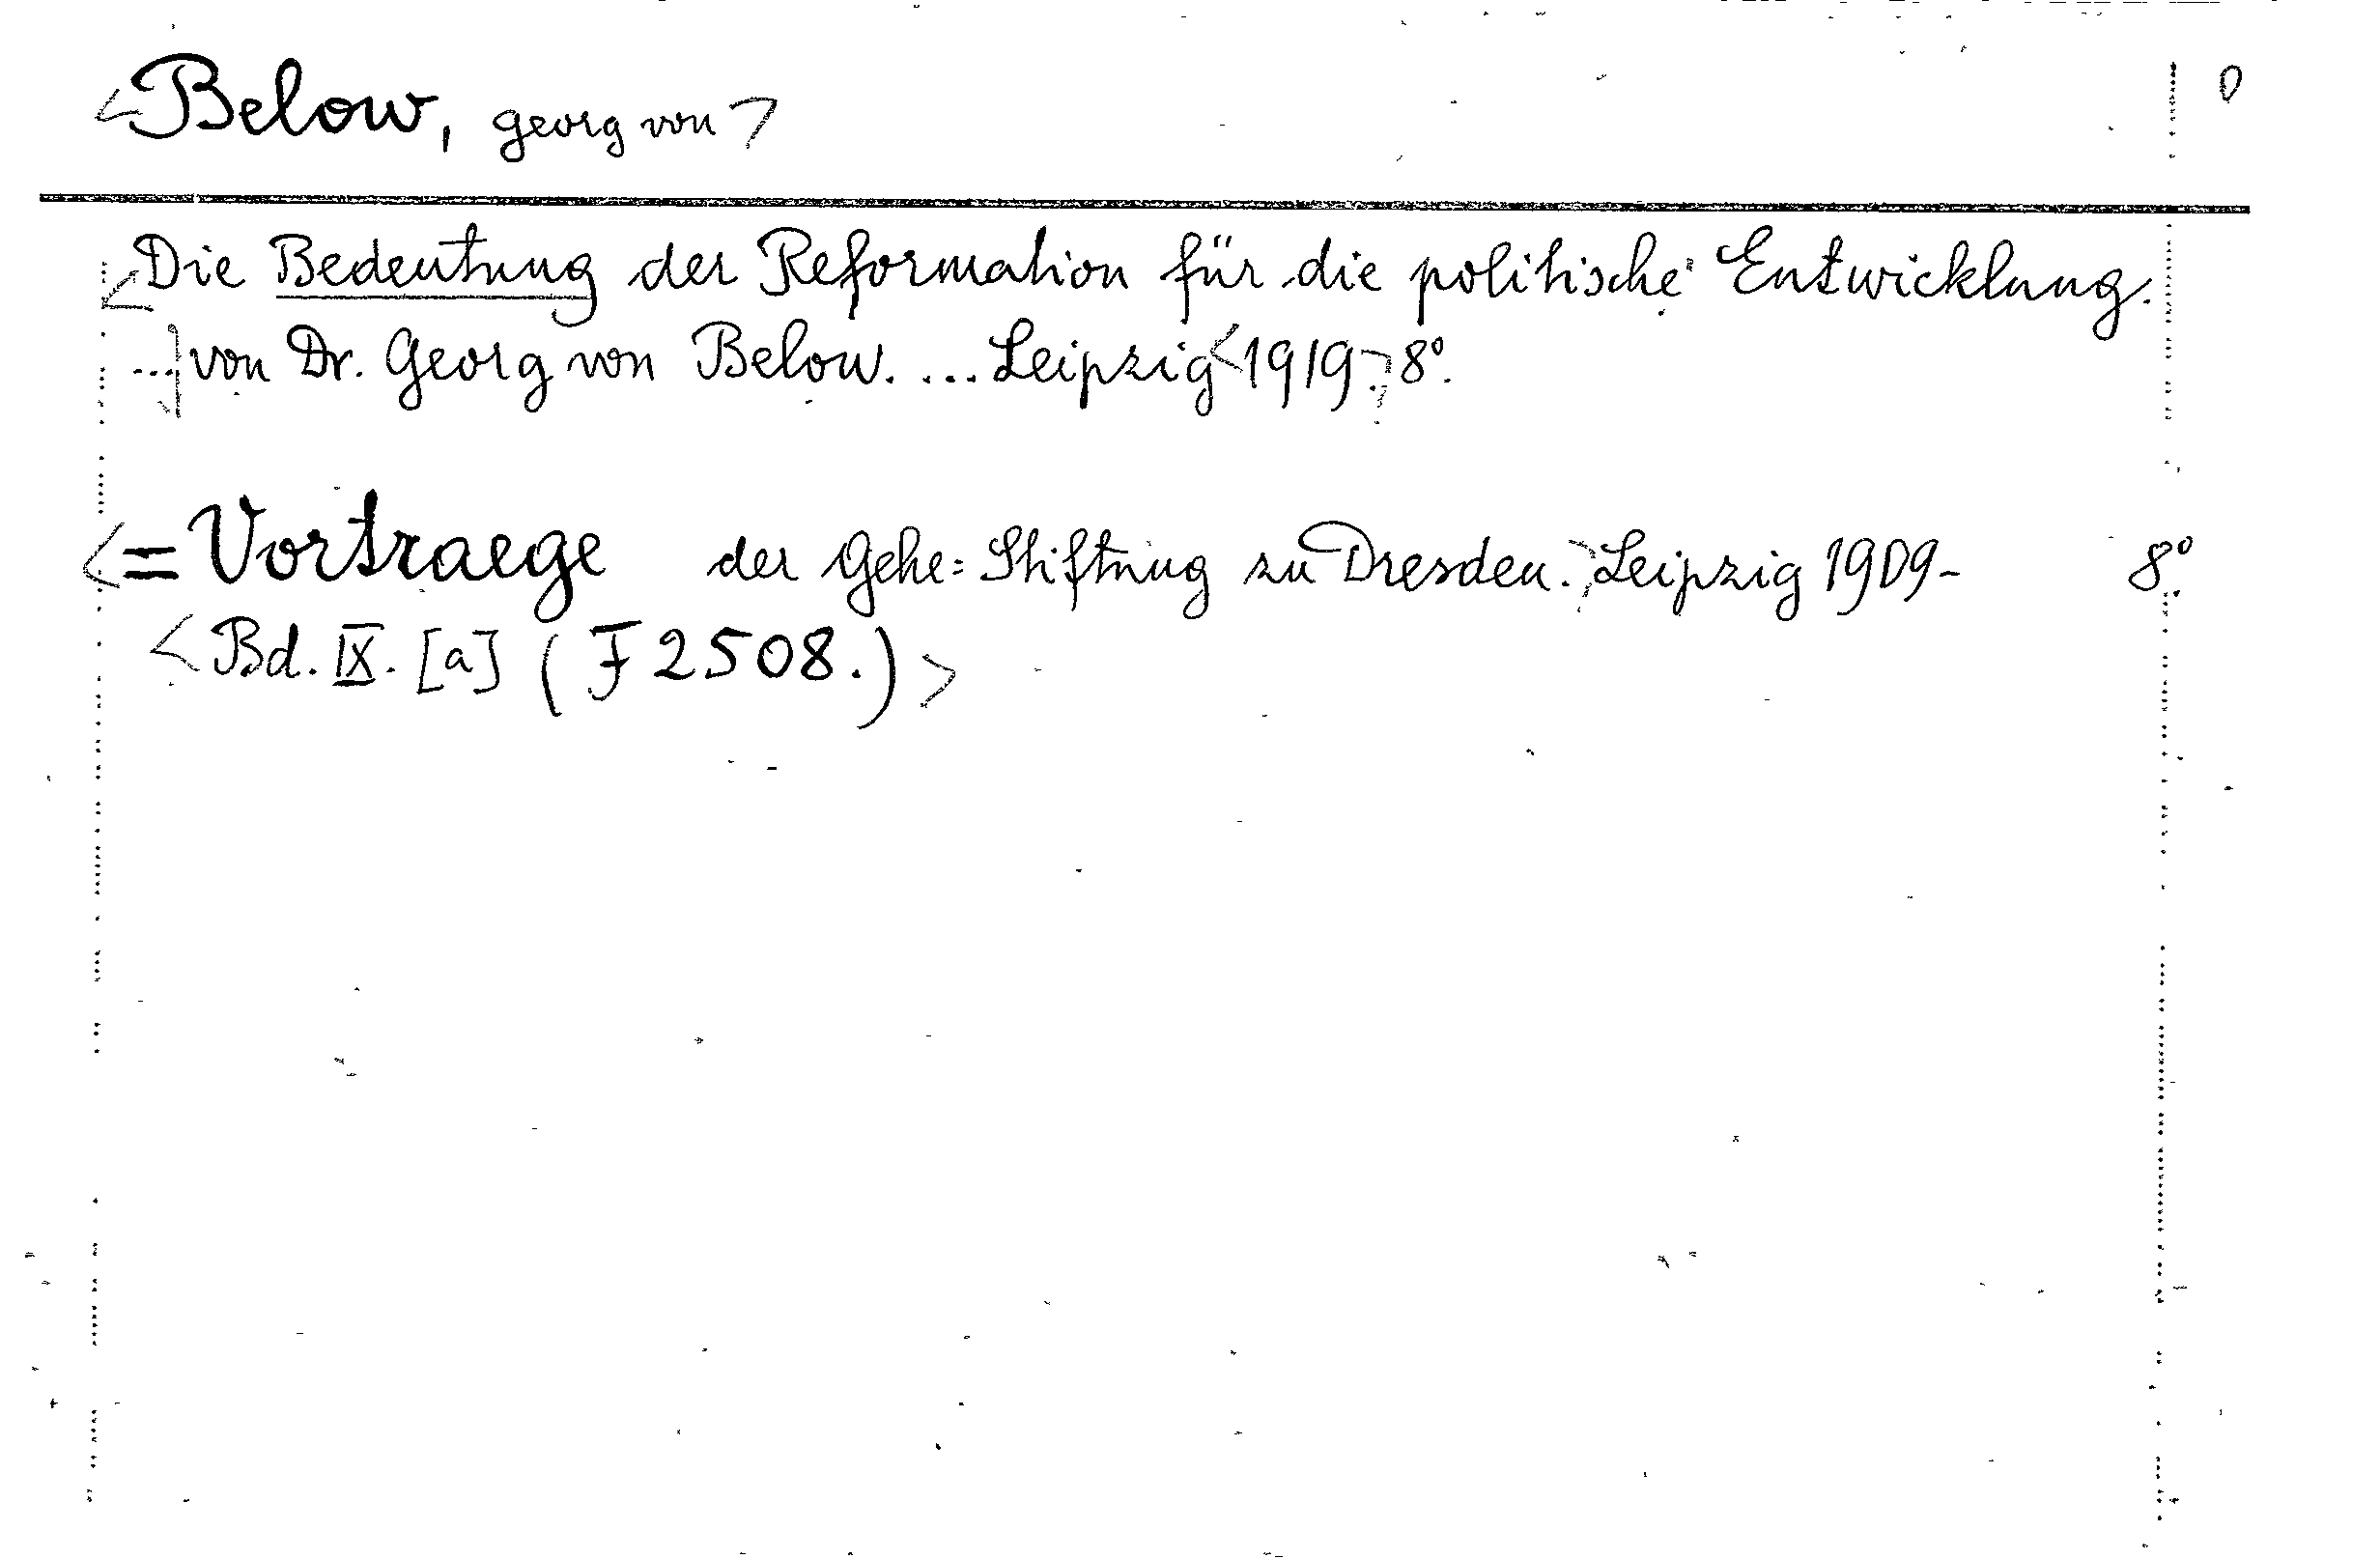 <Below, Georg von>
0
<Die Bedeutung der Reformation für die politische Entwicklung.
...] von Dr. Georg von Below. ... Leipzig <1919.> 8°.
<= Vortraege der Gehe=Stiftung zu Dresden.> Leipzig 1909- 8°.
<Bd. IX. [a] (F 2508.)>